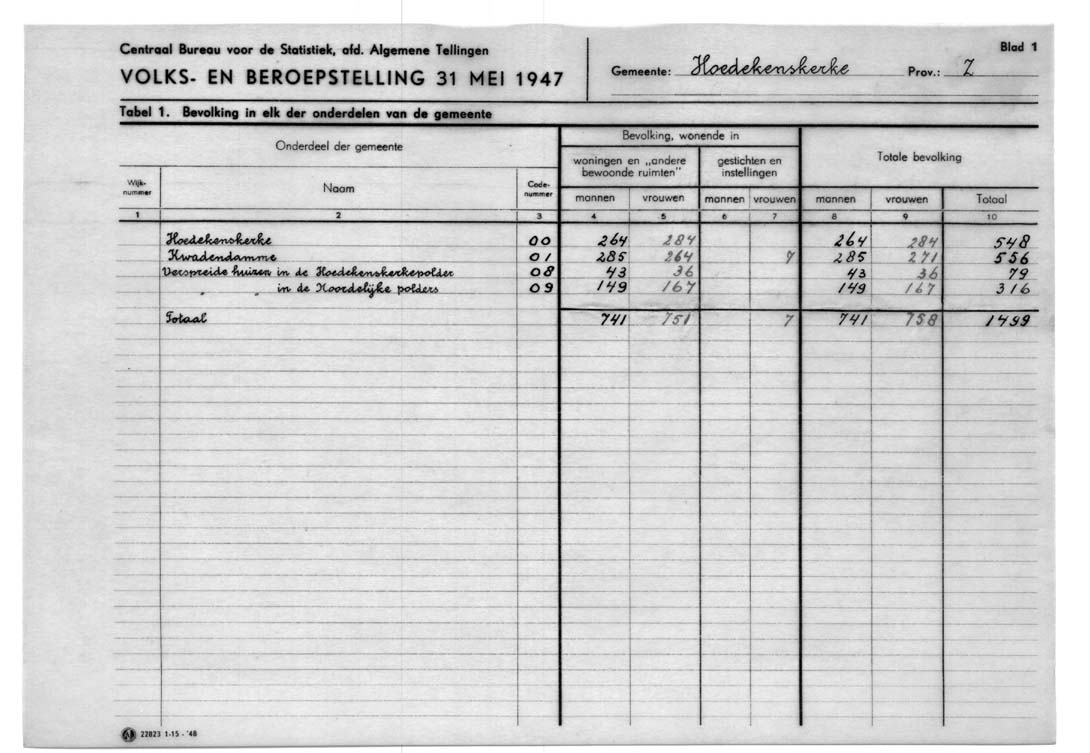 Centraal Bureau voor de Statistiek, afd. Algemene Tellingen
VOLKS- EN BEROEPSTELLING 31 MEI 1947
Gemeente: Hoedekenskerke Prov.: Z
Blad 1
Tabel 1. Bevolking in elk der onderdelen van de gemeente
Onderdeel der gemeente
Bevolking, wonende in
Totale bevolking
woningen en „andere bewoonde ruimten"
gestichten en instellingen
Wijk-nummer Naam Code-nummer mannen vrouwen mannen vrouwen mannen vrouwen Totaal
1 2 3 4 5 6 7 8 9 10
Hoedekenskerke 00 264 284 264 284 548
Kwadendamme 01 285 264 7 285 271 556
Verspreide huizen in de Hoedekenskerkepolder 08 43 36 43 36 79
„ „ in de Noordelijke polders 09 149 167 149 167 316
Totaal 741 751 7 741 758 1499
22823 1-15-'48